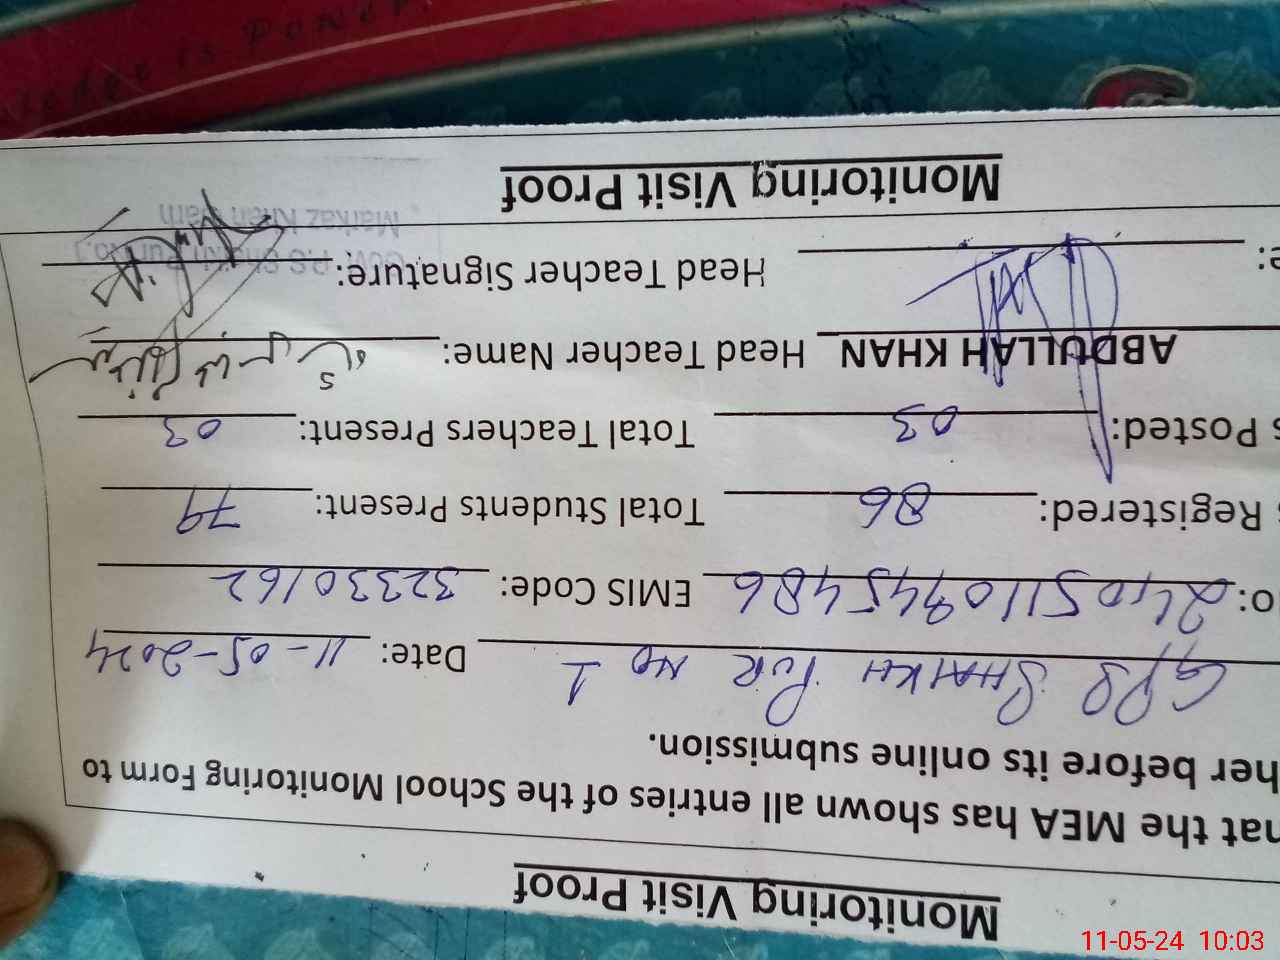 Monitoring Visit Proof
hat the MEA has shown all entries of the School Monitoring Form to
her before its online submission.
GPS SHAIKH PUR NO 1 Date: 11-05-2024
o: EMIS Code: 32330162
Registered: 86 Total Students Present: 79
s Posted: 03 Total Teachers Present: 03
ABDULLAH KHAN Head Teacher Name:
e: Head Teacher Signature:
Monitoring Visit Proof
11-05-24 10:03